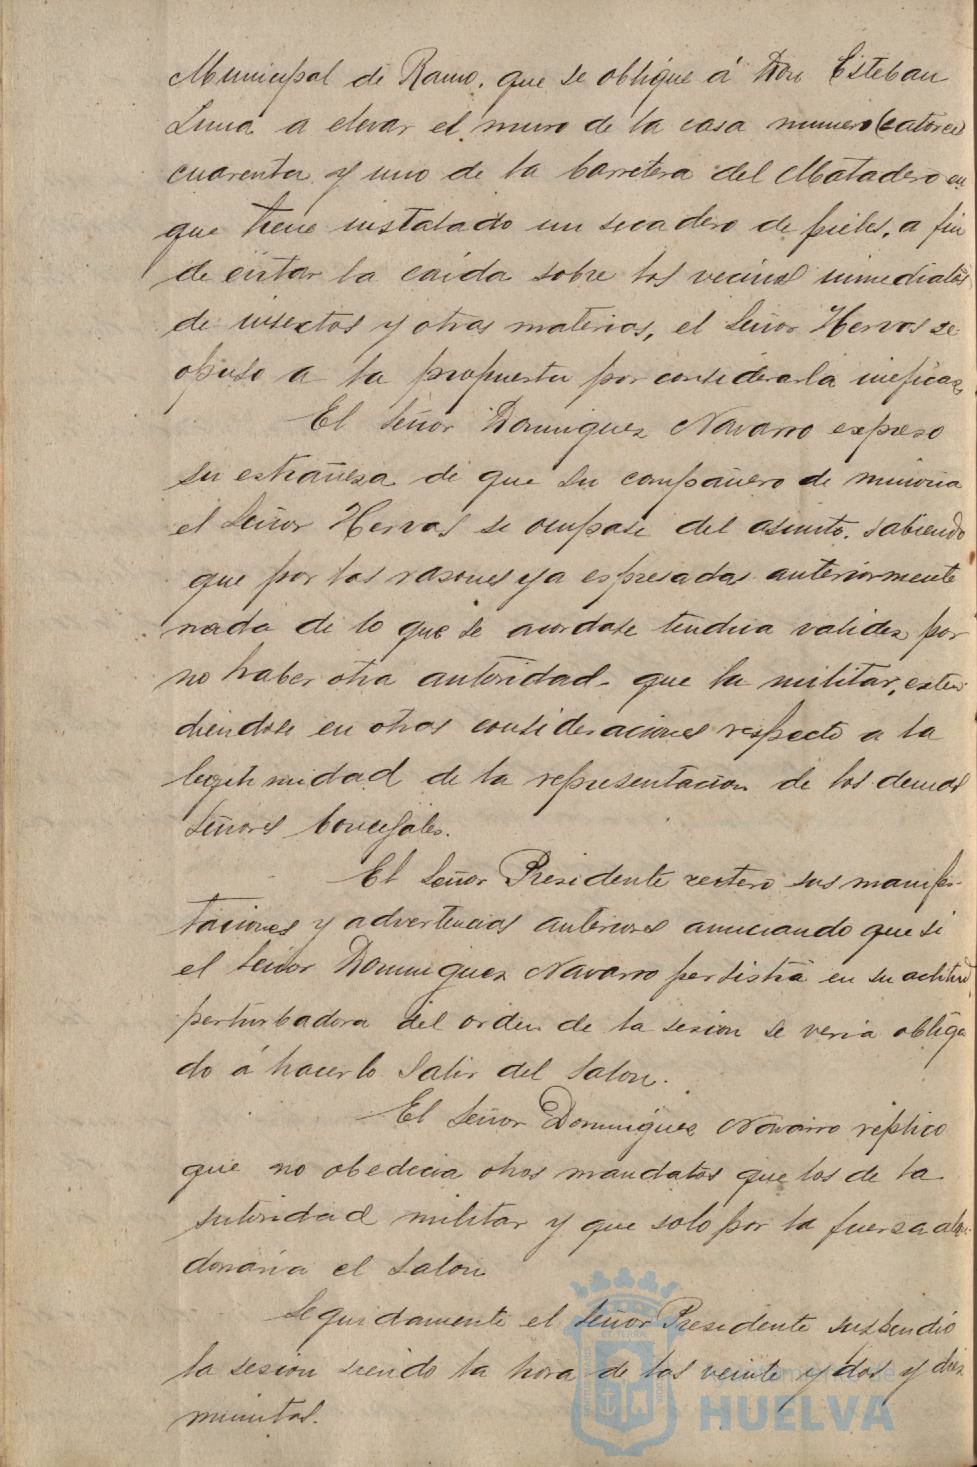 Municipal de Ramo, que se obligue á Don Esteban
Luna a elevar el muro de la casa numero (catorce)
cuarenta y uno de la Carretera del Matadero en
que tiene instalado un secadero de pieles, a fin
de evitar la caida sobre los vecinos inmediatos
de insectos y otras materias, el Señor Hervas se
opuso a la propuesta por considerarla ineficaz
El Señor Dominguez Navarro expreso
su estrañeza de que su compañero de minoria
el Señor Hervas se ocupase del asunto, sabiendo
que por las razones ya espresadas anteriormente
nada de lo que se acordase tendria validez por
no haber otra autoridad que la militar, exten
diendose en otras consideraciones respecto a la
legitimidad de la representacion de los demas
Señores Concejales.
El Señor Presidente reitero sus manifes-
taciones y advertencias anteriores anunciando que si
el Señor Dominguez Navarro persistia en su actitud
perturbadora del orden de la sesion se veria obliga
do á hacerlo salir del salon.
El Señor Dominguez Navarro replico
que no obedecia otros mandatos que los de la
autoridad militar y que solo por la fuerza aban
donaria el salon
Seguidamente el Señor Presidente suspendió
la sesion siendo la hora de las veinte y dos y diez
minutos.
Ayuntamiento de
HUELVA